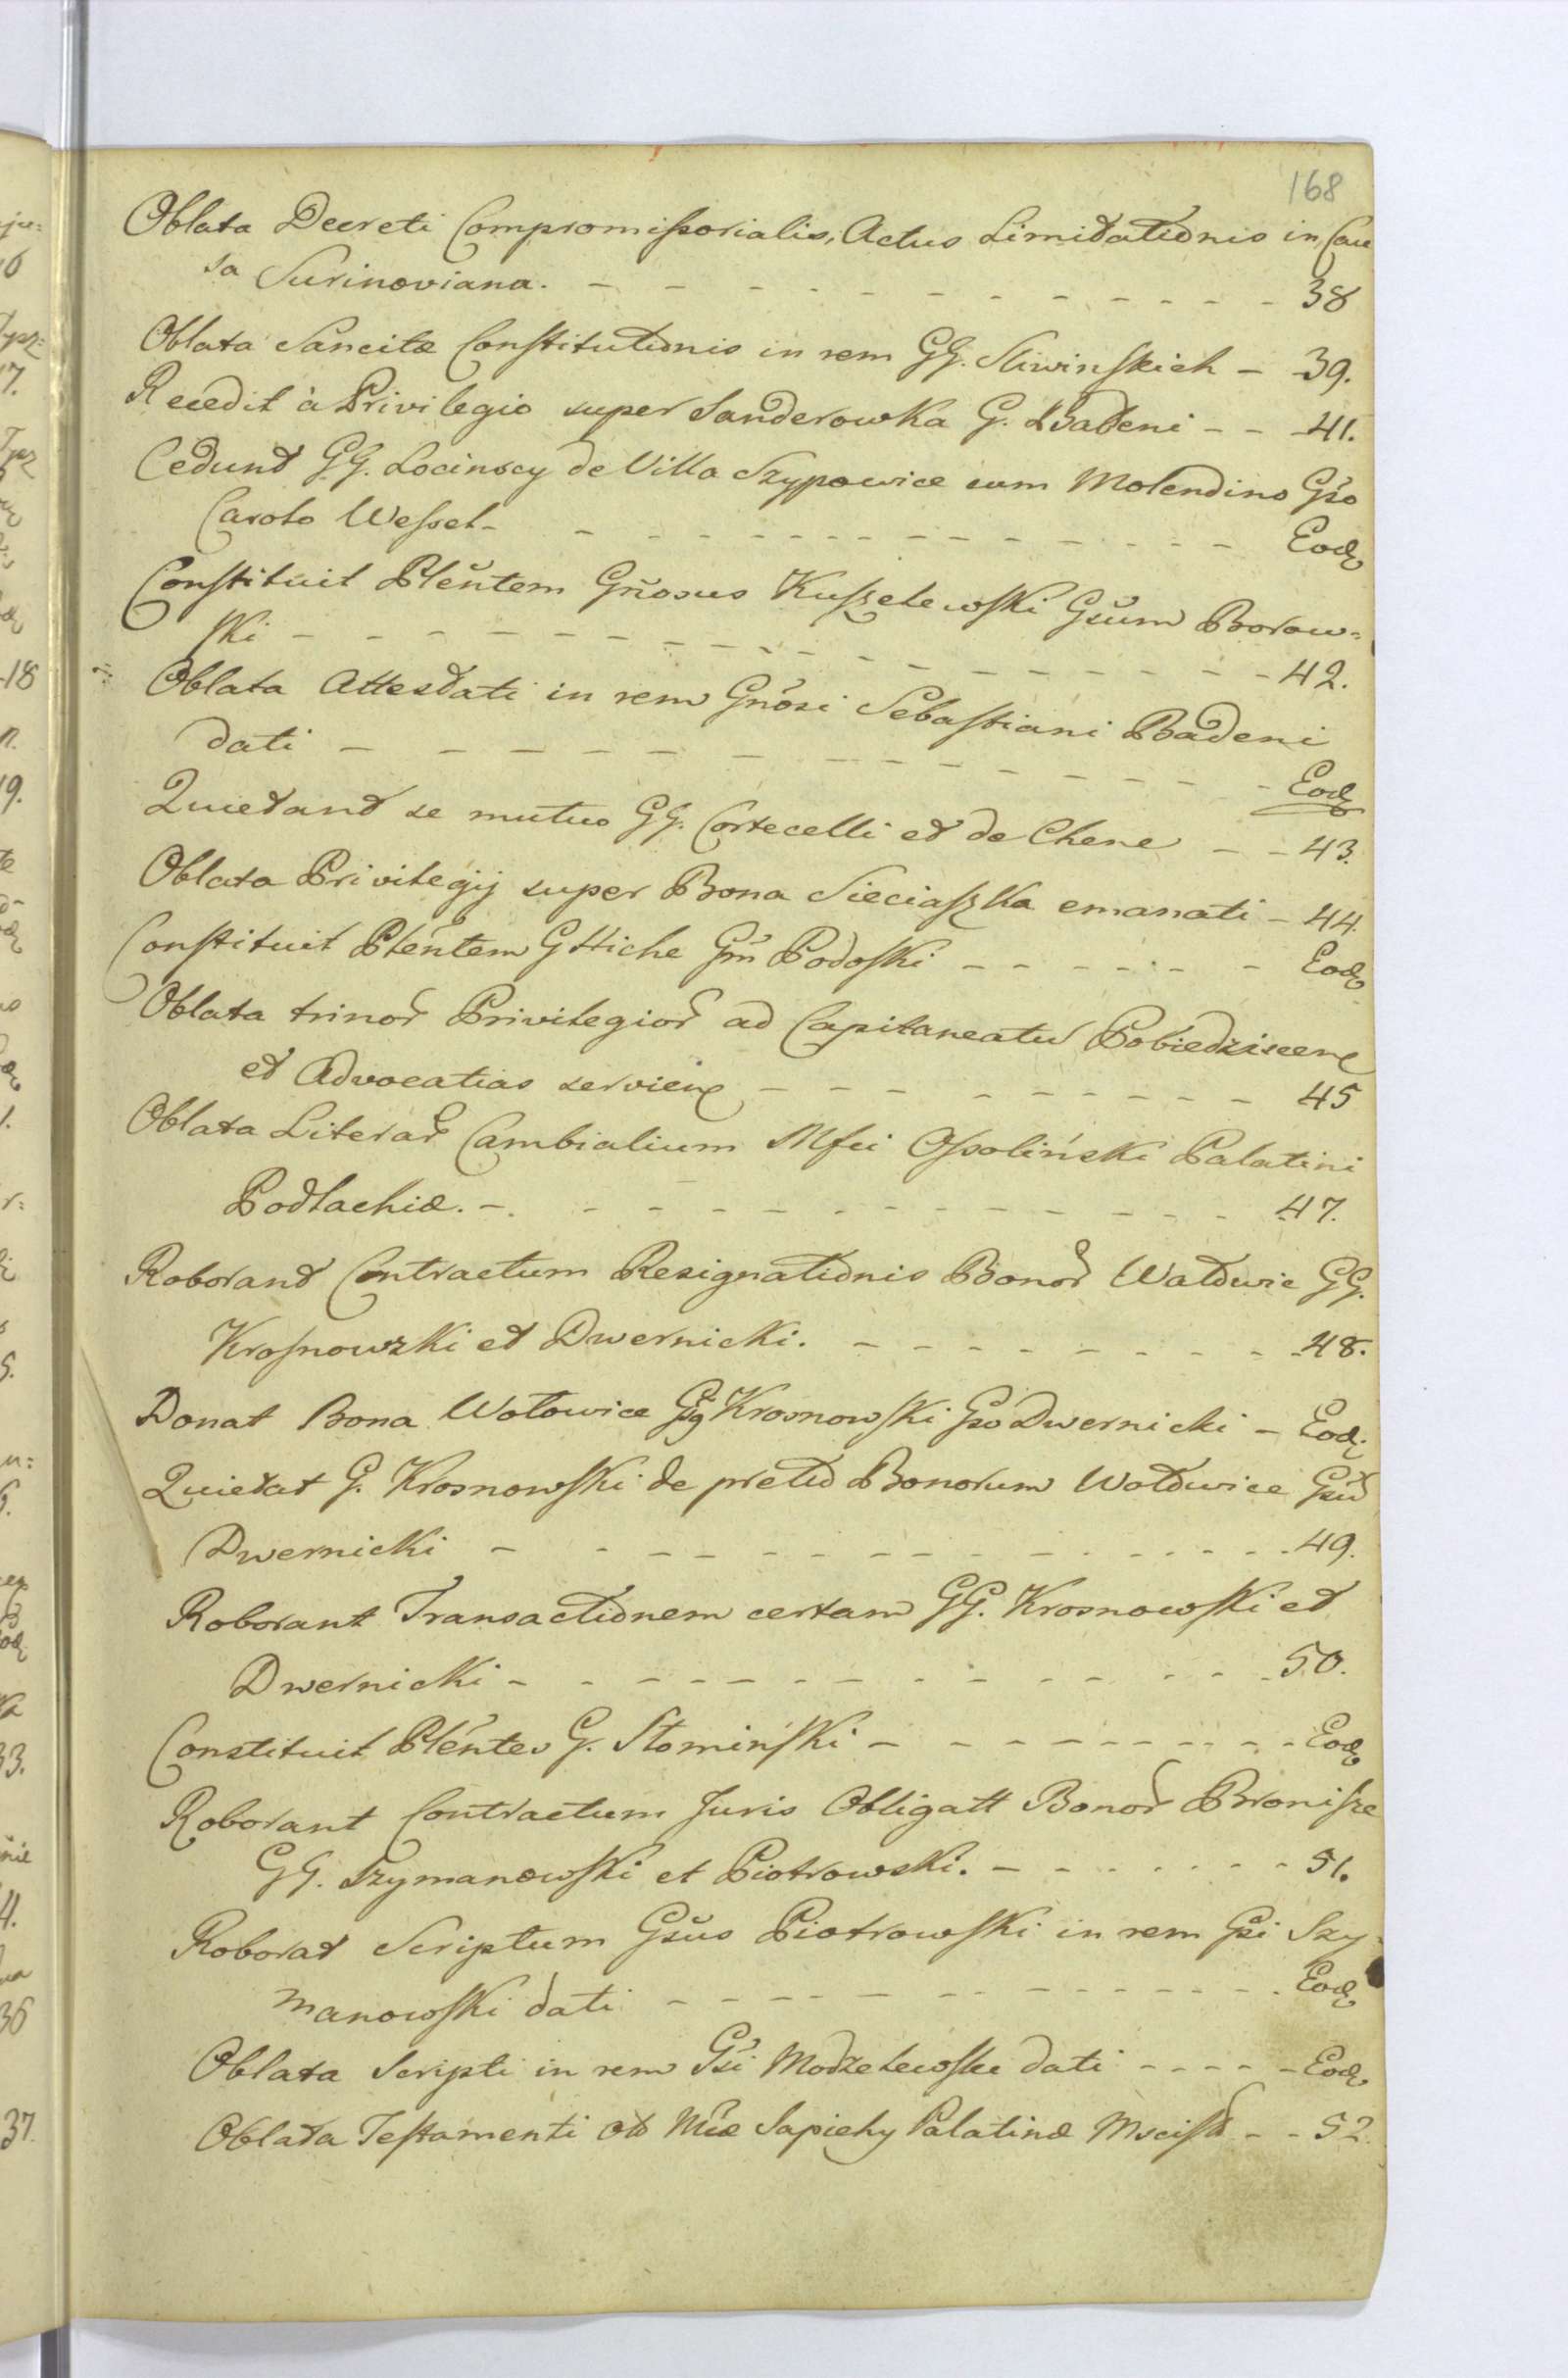 168
Oblata Decreti Compromissorialis, Actus Limitationis in Cau
sa Surinoviana. - - - - - - - - - - - - 38
Oblata Sancitæ Constitutionis in rem GG. Sliwinskich - 39.
Recedit à Privilegio super Sanderowka G. Badeni - - 41.
Cedunt GG. Locinscy de Villa Szypowice cum Molendino Gso
Carolo Wessel - - - - - - - - - - - - Eodę
Constituit Pleñtem Gnosus Kuszelewski Gsum Borow=
ski - - - - - - - - - - - - - - 42.
Oblata Attestati in rem Gnosi Sebastiani Badeni
dati - - - - - - - - - - - - - Eodę
Quietant se mutuo GG. Cortecelli et de Chene - - 43.
Oblata Privilegij super Bona Sieciaszka emanati - 44.
Constituit Pleñtem G Hiche Gm Podoski - - - - - - Eodę
Oblata trinor Privilegior ad Capitaneatu Pobiedziscen
et Advocatias servien - - - - - - - - - 45
Oblata Literar Cambialium Mfci Ossoliński Palatini
Podlachiæ. - - - - - - - - - - - - 47.
Roborant Contractum Resignationis Bonor Watowic GG.
Krosnowski et Dwernicki. - - - - - - - - - 48.
Donat Bona Wolowice Gg Krosnowski Gso Dwernicki - Eodę
Quietat G. Krosnowski de pretio Bonorum Wolowice Gsu
Dwernicki - - - - - - - - - - - - 49.
Roborant Transactionem certam GG. Krosnowski et
Dwernicki - - - - - - - - - - - - 50.
Constituit Pleñtes G. Słomiński - - - - - - - - Eodę
Roborant Contractum Juris Obligatt Bonor Bronisze
GG. Szymanowski et Piotrowski. - - - - - - - 51.
Roborat Scriptum Gsus Piotrowski in rem Gsi Szy-
manowski dati - - - - - - - - - - - Eodę
Oblata Scripti in rem Gsi Modzelewski dati - - - - - Eodę
Oblata Testamenti ol Mfcæ Sapiehy Palatinæ Mscisl - - 52.